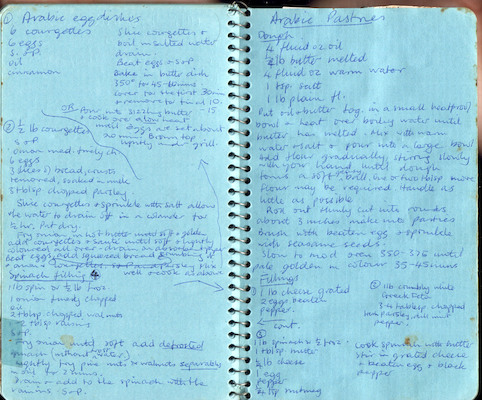 ① Arabic eggdishes
6 courgettes
6 eggs
S. & P
oil
cinnamon
Slice courgettes &
boil in salted water
drain.
Beat eggs & S & P
Bake in butter dish
350° for 45-60mins
cover for the first 30m
& remove for final 10-15
OR Pour into sizzling butter
& cook over slow heat
until eggs are set about
20 mins. Brown top
lightly under grill.
② ½ lb courgettes
S & P
Onion med. finely ch
6 eggs
3 slices bread, crusts
removed, soaked in milk
3 tblsp chopped parsley
Slice courgettes & sprinkle with salt allow
the water to drain off in a colander for
½ hr. Pat dry.
Fry onion in hot butter until soft & golden
add courgettes & sauté until soft & lightly
coloured all over. drain on absorbent paper
Beat eggs, add squeezed bread
well & cook as above
Spinach filling 4
1 lb spin or ½ lb froz
1 onion finely chopped
oil
2 tblsp chopped walnuts
2 tblsp raisins
S & P.
Fry onion until soft add defrosted
spinach (without water)
Lightly fry pine nuts or walnuts separately
in oil for 2 mins.
Drain & add to the spinach with the
raisins. S & P.
Arabic Pastries
Dough
4 fluid oz oil
¼ lb butter melted
4 fluid oz warm water
1 tsp. salt
1 lb plain fl.
Put oil & butter tog. in a small heatproof
bowl & heat over boiling water until
butter has melted. Mix with warm
water & salt & pour into a large bowl
Add flour gradually, stirring slowly
with your hand until dough
forms a soft ball. 1 or two tblsp more
flour may be required. Handle as
little as possible.
Roll out thinly cut into rounds
about 3 inches make into pasties
Brush with beaten egg & sprinkle
with seasame seeds.
Slow to mod oven 350-375 until
pale golden in colour 35-45 mins
Fillings
① 1 lb cheese grated
2 eggs beaten
pepper.
② 1 lb crumbly white
Greek cheese
3-4 tablesp. chopped
parsley, dill mint
pepper.
← cont.
③
1 lb spinach or ½ froz.
1 tblsp butter
¼ lb cheese
1 egg
pepper
¼ tsp nutmeg
Cook spinach with butter
stir in grated cheese
& beaten egg & black
pepper